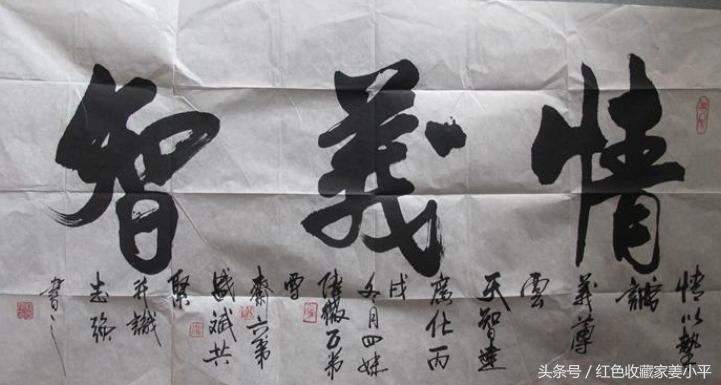 情義智
情以摯
義薄
雲
天智達
廣仕丙
戌
冬月四妹
陸薇五弟
雪
齋六弟
盛斌共
聚
并識
志強
書之
头条号 / 红色收藏家姜小平